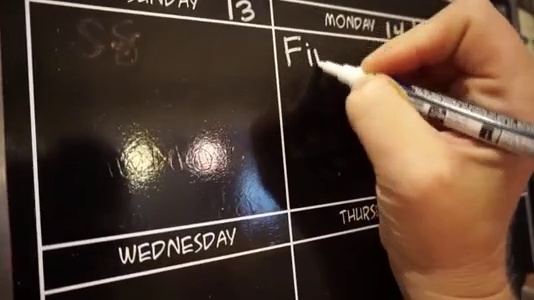 SUNDAY 13
MONDAY 14
Fi
WEDNESDAY
THURS